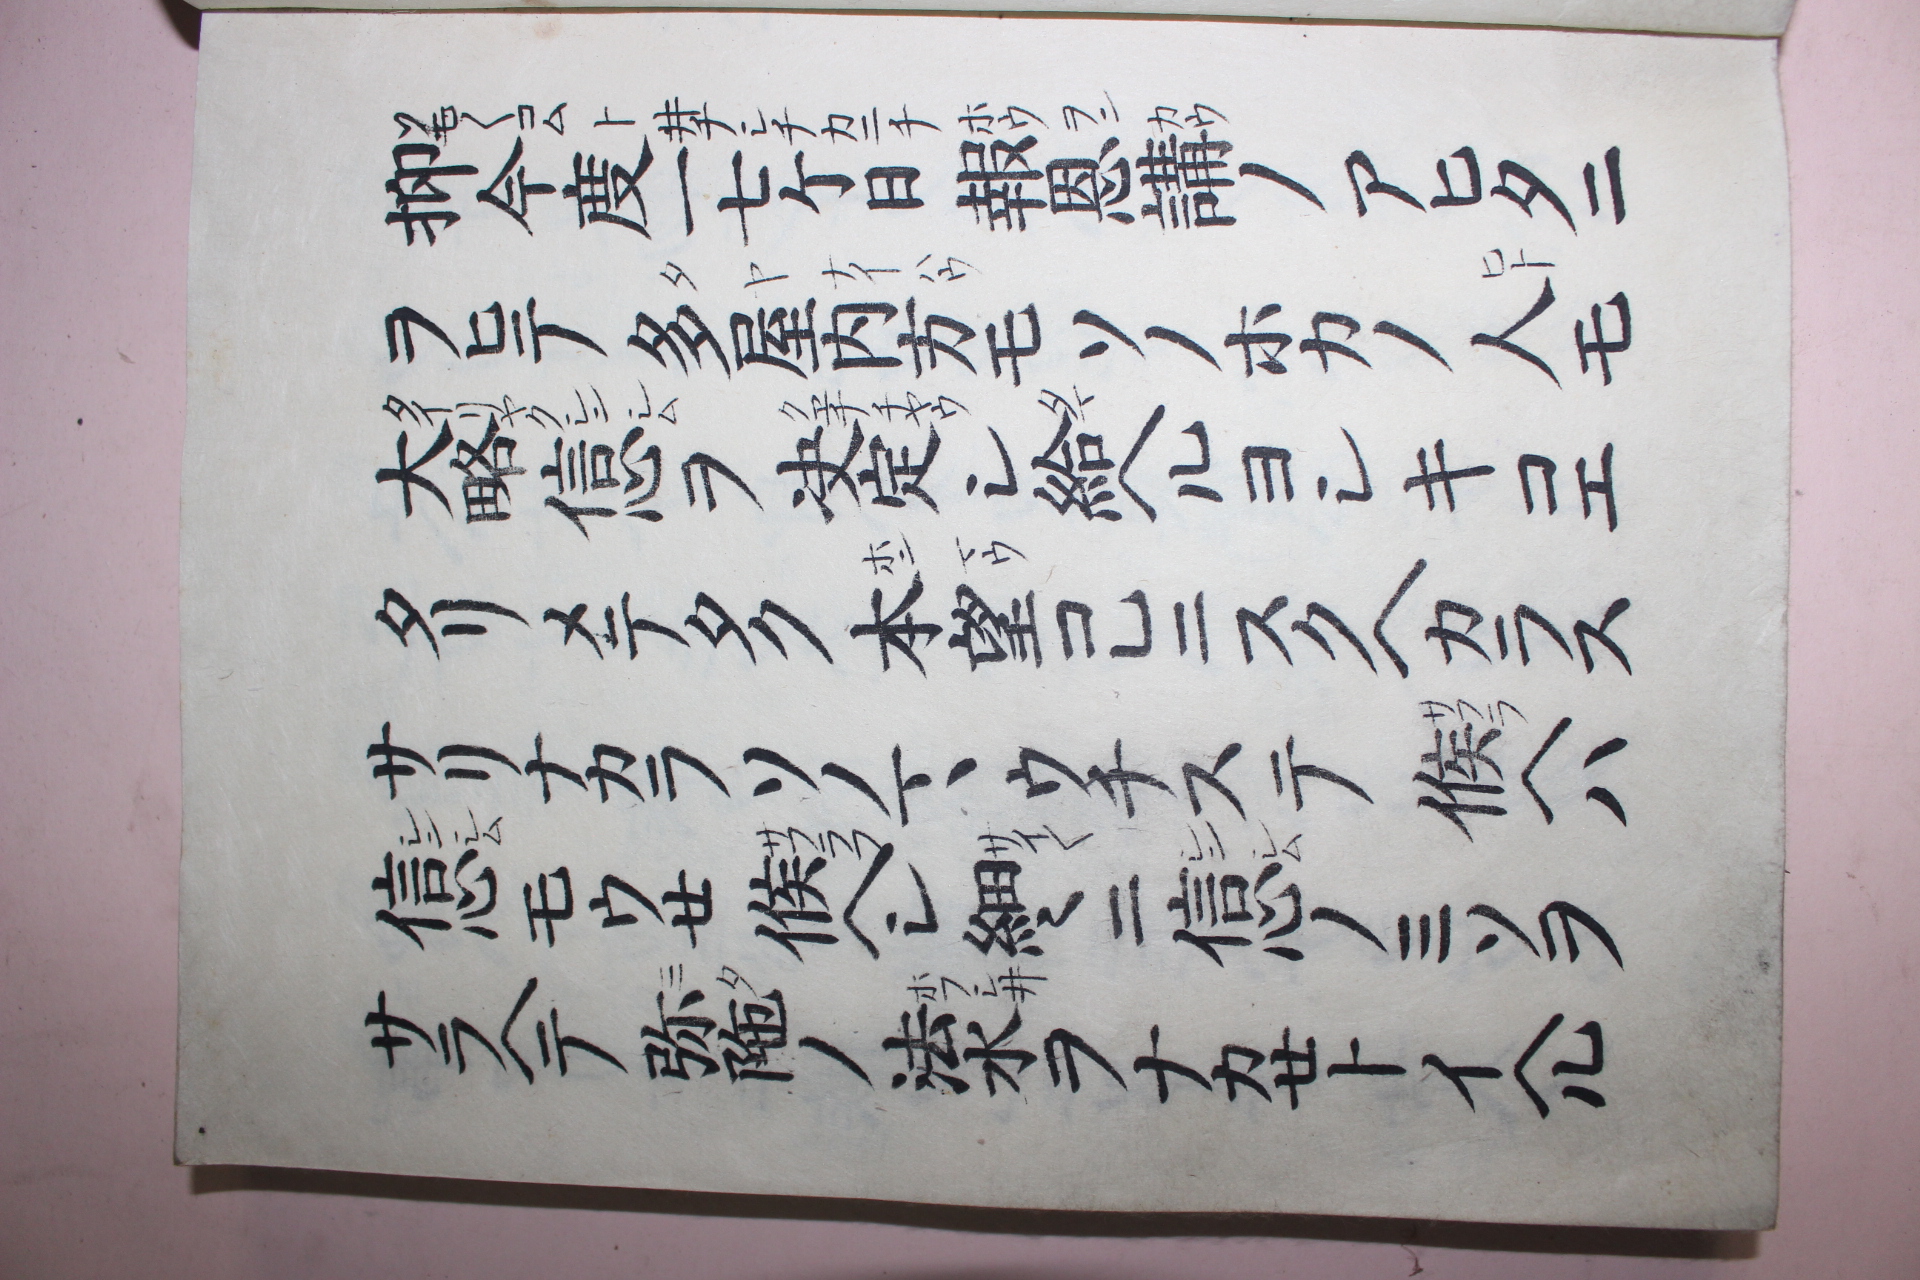 抑今度一七ケ日報恩講ノアヒタニ
ヲヒテ多屋内方モソノホカノ人モ
大略信心ヲ决定シ給ヘルヨシキコエ
タリメテタク本望コレニスクヘカラス
サリナカラソノマヽウチステ候ヘハ
信心モウせ候ヘシ細〻ニ信心ノミソヲ
サラヘテ弥陁ノ法水ヲナカせトイヘル